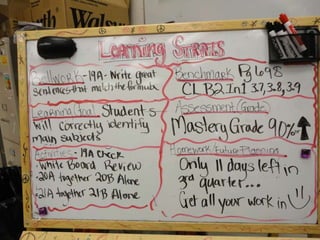 Walsw
Learning Strats
Bellwork- 19A- Write great
sentences that match the formula.
Learning Goal: Students
will correctly identify
main subjects
Activities - 19A Check
• White Board Review
• 20A together 20B Alone
• 21A together 21B Alone
Benchmark Pg 698
CL B2.In1 3.7, 3.8, 3.9
Assessment (Grade)
Mastery Grade 90%↑
Homework/Future Planning
Only 11 days left in
3rd quarter...
Get all your work in